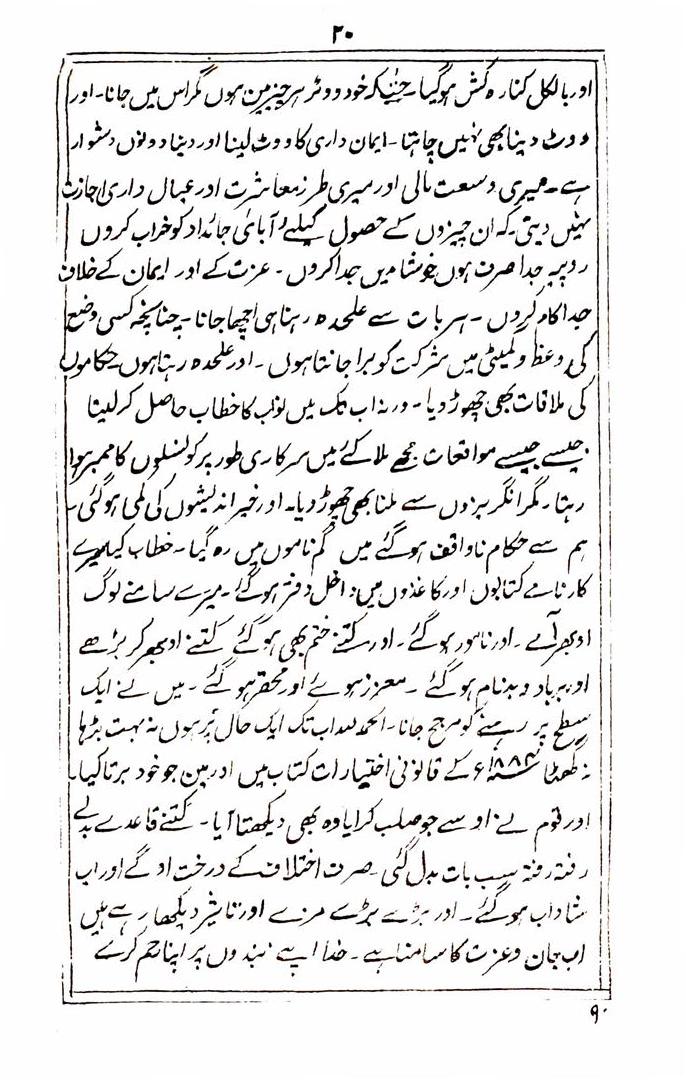 ۲۰
اور بالکل کنارہ کش ہوگیا۔ حتیٰکہ خود ووٹر ہر چیز مین ہوں مگر اس میں جانا۔ اور
ووٹ دینا بھی نہیں چاہتا۔ ایمان داری کا ووٹ لینا اور دینا دونوں دشوار
ہے۔ میری وسعت مالی اور میری طرز معاشرت اور عیال داری اجازت
نہیں دیتی۔ کہ ان چیزوں کے حصول کیلئے آبائی جائداد کو خراب کروں
روپیہ جدا صرف ہوں خوشامیں جدا کروں۔ عزت کے اور ایمان کے خلاف
جدا کام کروں۔ ہر بات سے علحدہ رہنا ہی اچھا جانا۔ چنانچہ کسی وضع
کی وعظ و کمیٹی میں شرکت کو برا جانتا ہوں۔ اور علحدہ رہتا ہوں حکاموں
کی ملاقات بھی چھوڑ دیا۔ ورنہ اب تک میں نواب کا خطاب حاصل کر لیتا
جیسے جیسے مواقعات مجھے ملا کے میں سرکاری طور پر کونسلوں کا ممبر ہوا
رہتا۔ مگر انگریزوں سے ملنا بھی چھوڑ دیا۔ اور خیر اندیشوں کی کمی ہوگئی۔
ہم سے حکام ناواقف ہوگئے میں گم ناموں میں رہ گیا۔ خطاب کیا میرے
کارنامے کتابوں اور کاغذوں میں داخل دفتر ہوگئے۔ میرے سامنے لوگ
اوبھر آے۔ اور نامور ہوگئے۔ اور کتنے ختم بھی ہوگئے کتنے اوبھر کر بڑھے
اور برباد و بدنام ہوگئے۔ معزز ہوئے اور محقر ہوگئے۔ میں نے ایک
سطح پر رہنے کو مرجح جانا۔ الحمد للہ اب تک ایک حال پر ہوں نہ بہت بڑہا
نہ گھٹا ۱۸۸۴ء کے قانونی اختیارات کتاب میں اور مین جو خود برتا کیا۔
اور قوم نے اوسے جو صلب کرایا وہ بھی دیکھتا آیا۔ کتنے قاعدے بدلے
رفتہ رفتہ سب بات بدل گئی۔ صرف اختلاف کے درخت اوگے اور اب
شاداب ہوگئے۔ اور بڑے بڑے مزے اور تاثیر دیکھا رہے ہیں
اب جان و عزت کا سامنا ہے۔ خدا اپنے بندوں پر اپنا رحم کرے
۹۰